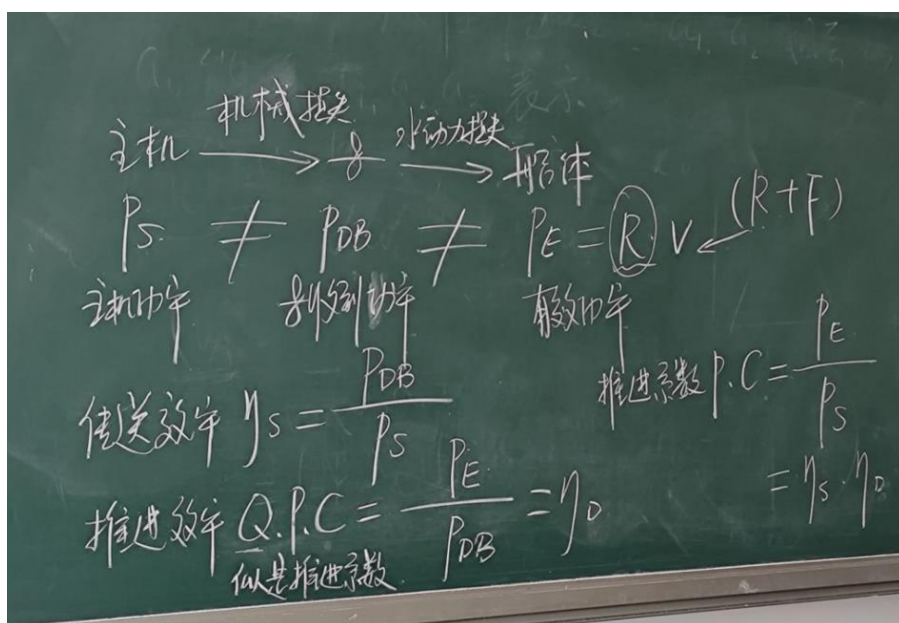 主机 机械损失 8 水动力损失 船体
P_S ≠ P_DB ≠ P_E = R V (R+F)
主机功率 8收到功率 有效功率
传送效率 η_S = P_DB / P_S
推进系数 P.C = P_E / P_S
= η_S · η_D
推进效率 Q.P.C = P_E / P_DB = η_D
似是推进系数